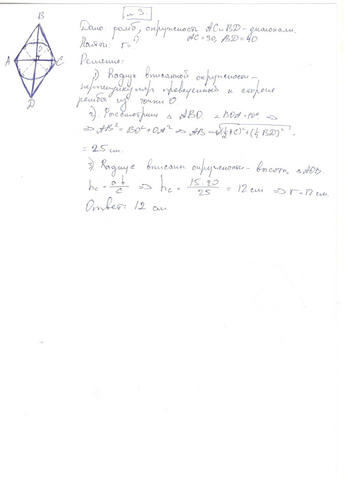 № 3.
Дано: ромб, окружность AC и BD - диагонали.
AC=30, BD=40
Найти: r
Решение:
1) Радиус вписанной окружности -
перпендикуляр проведенный к стороне
ромба из точки O
2) Рассмотрим △ ABO. ∠BOA=90° ⇒
⇒ AB² = BO² + OA² ⇒ AB = √(½AC)² + (½BD)² =
= 25 см.
3) Радиус вписан окружности - высота △AOB.
hc = a·b/c ⇒ hc = 15·20/25 = 12 см ⇒ r = 12 см.
Ответ: 12 см
B
A
C
D